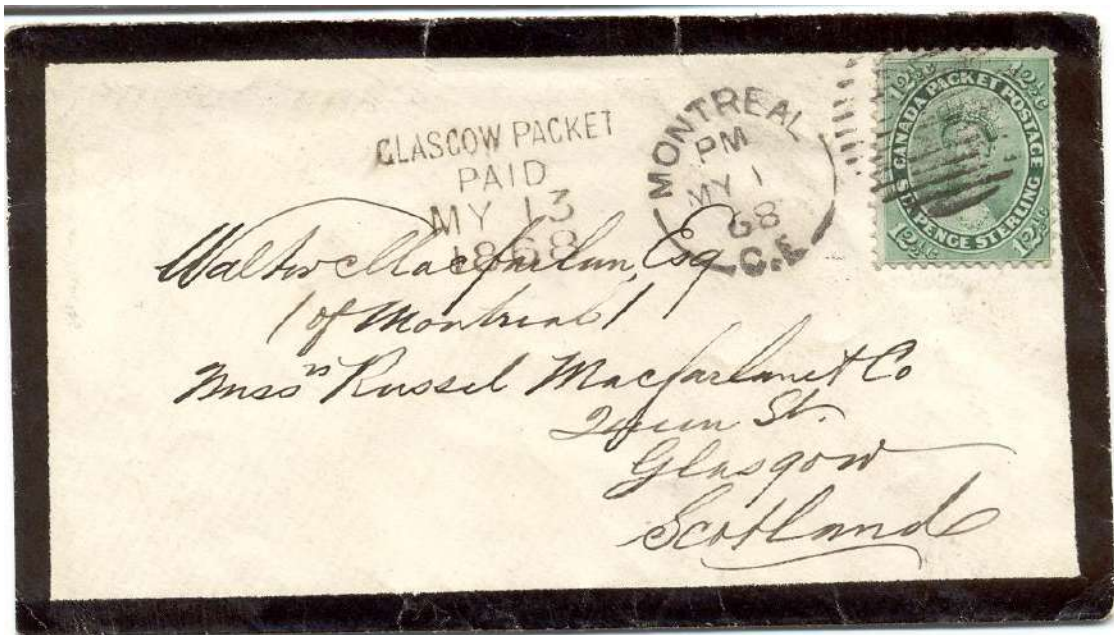 GLASGOW PACKET
PAID
MY 13
1868
MONTREAL
PM
MY 1
68
C.E
12½c 12½c
CANADA PACKET POSTAGE
SIX PENCE STERLING
12½c 12½c
Walter Macfarlan, Esq
(of Montreal)
Messrs Russel Macfarlane & Co
Queen St.
Glasgow
Scotland